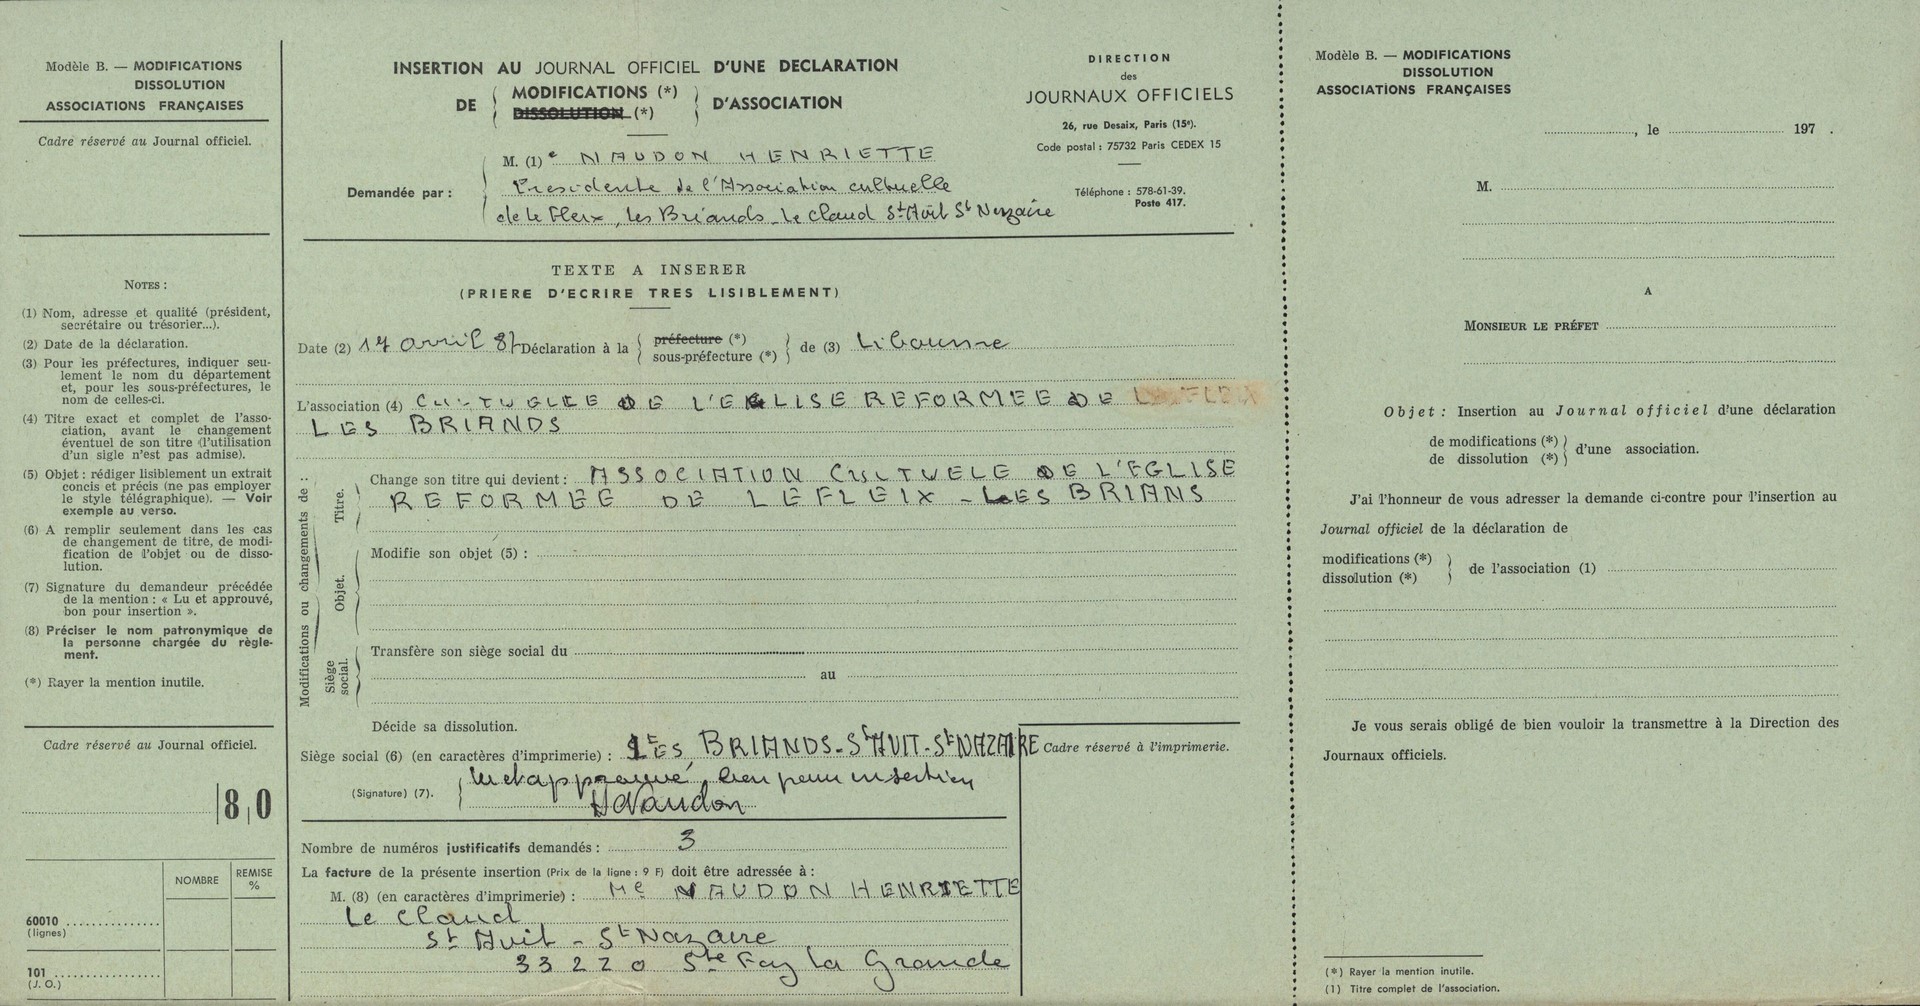 Modèle B. — MODIFICATIONS
DISSOLUTION
ASSOCIATIONS FRANÇAISES
Cadre réservé au Journal officiel.
NOTES :
(1) Nom, adresse et qualité (président,
secrétaire ou trésorier...).
(2) Date de la déclaration.
(3) Pour les préfectures, indiquer seu-
lement le nom du département
et, pour les sous-préfectures, le
nom de celles-ci.
(4) Titre exact et complet de l'asso-
ciation, avant le changement
éventuel de son titre (l'utilisation
d'un sigle n'est pas admise).
(5) Objet : rédiger lisiblement un extrait
concis et précis (ne pas employer
le style télégraphique). — Voir
exemple au verso.
(6) A remplir seulement dans les cas
de changement de titre, de modi-
fication de l'objet ou de disso-
lution.
(7) Signature du demandeur précédée
de la mention : « Lu et approuvé,
bon pour insertion ».
(8) Préciser le nom patronymique de
la personne chargée du règle-
ment.
(*) Rayer la mention inutile.
Cadre réservé au Journal officiel.
8 0
NOMBRE
REMISE
%
60010
(lignes)
101
(J. O.)
INSERTION AU JOURNAL OFFICIEL D'UNE DECLARATION
DE MODIFICATIONS (*) D'ASSOCIATION
DISSOLUTION (*)
DIRECTION
des
JOURNAUX OFFICIELS
26, rue Desaix, Paris (15e).
Code postal : 75732 Paris CEDEX 15
Téléphone : 578-61-39.
Poste 417.
Demandée par :
M. (1) e NAUDON HENRIETTE
Presidente de l'Association cultuelle
de le Fleix, les Briands - le Claud St Avit St Nazaire
TEXTE A INSERER
(PRIERE D'ECRIRE TRES LISIBLEMENT)
Date (2) 17 avril 81 Déclaration à la préfecture (*) de (3) Libourne
sous-préfecture (*)
L'association (4) CULTUELLE DE L'EGLISE REFORMEE DE LE FLEIX
LES BRIANDS
Modifications ou changements de :
Titre.
Change son titre qui devient : ASSOCIATION CULTUELE DE L'EGLISE
REFORMEE DE LEFLEIX - LES BRIANS
Objet.
Modifie son objet (5) :
Siège social.
Transfère son siège social du
au
Décide sa dissolution.
Siège social (6) (en caractères d'imprimerie) : LES BRIANDS - St AVIT - St NAZAIRE
Cadre réservé à l'imprimerie.
(Signature) (7). lu et approuvé, bon pour insertion
HNaudon
Nombre de numéros justificatifs demandés : 3
La facture de la présente insertion (Prix de la ligne : 9 F) doit être adressée à :
M. (8) (en caractères d'imprimerie) : Me NAUDON HENRIETTE
Le Claud
St Avit - St Nazaire
33220 Ste Foy la Grande
Modèle B. — MODIFICATIONS
DISSOLUTION
ASSOCIATIONS FRANÇAISES
, le 197 .
M.
A
MONSIEUR LE PRÉFET
Objet : Insertion au Journal officiel d'une déclaration
de modifications (*) d'une association.
de dissolution (*)
J'ai l'honneur de vous adresser la demande ci-contre pour l'insertion au
Journal officiel de la déclaration de
modifications (*) de l'association (1)
dissolution (*)
Je vous serais obligé de bien vouloir la transmettre à la Direction des
Journaux officiels.
(*) Rayer la mention inutile.
(1) Titre complet de l'association.